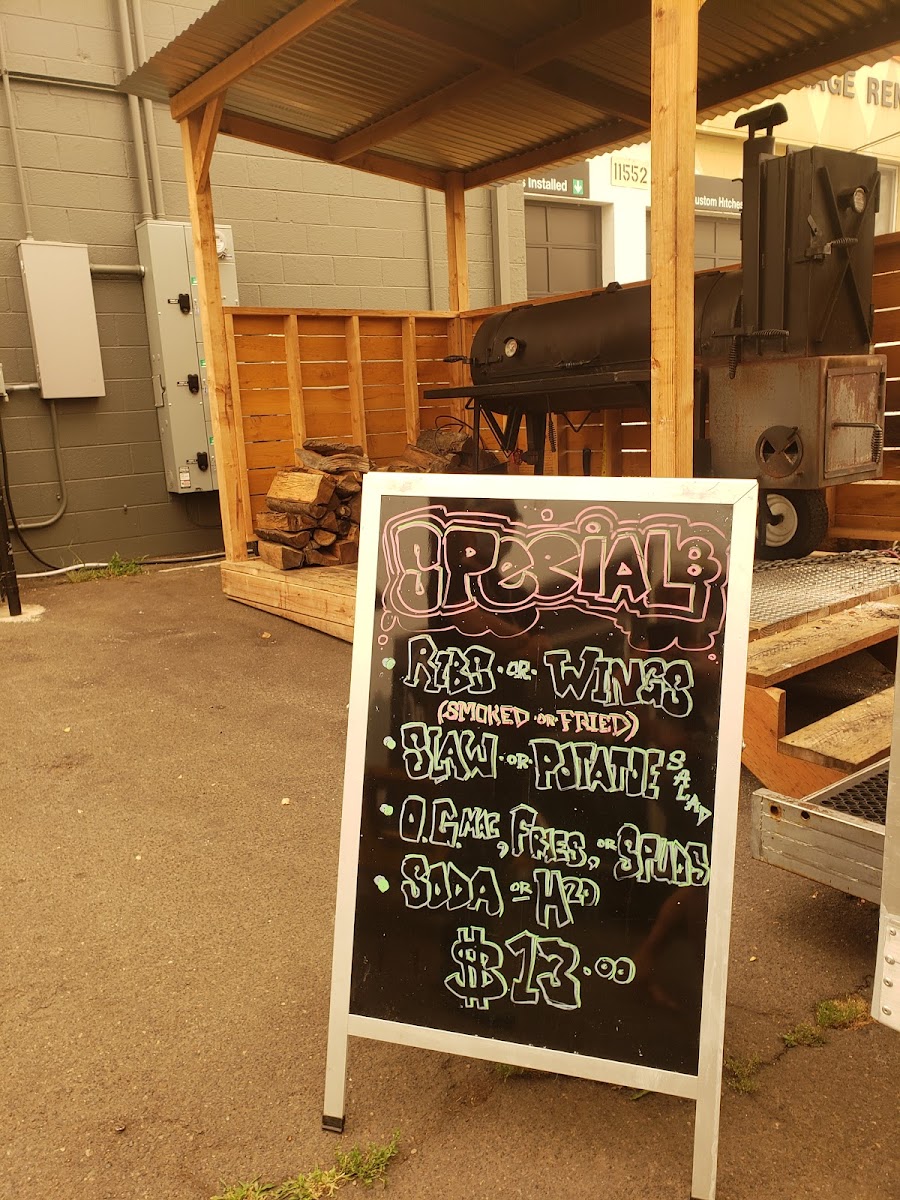 AGE REN
s Installed
11552
ustom Hitches
SPECIALS
• RIBS • OR • WINGS
(SMOKED OR FRIED)
• SLAW • OR • POTATOE SALAD
• O.G. MAC, FRIES, OR SPUDS
• SODA OR H2O
$13.00